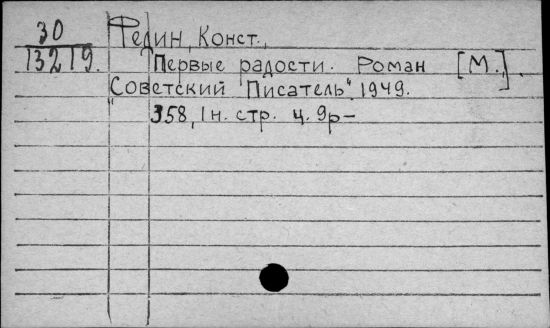 30
13219.
Федин, Конст.,
Первые радости. Роман [М.,].
"Советский Писатель" 1949.
358, 1н. стр. ц. 9р—